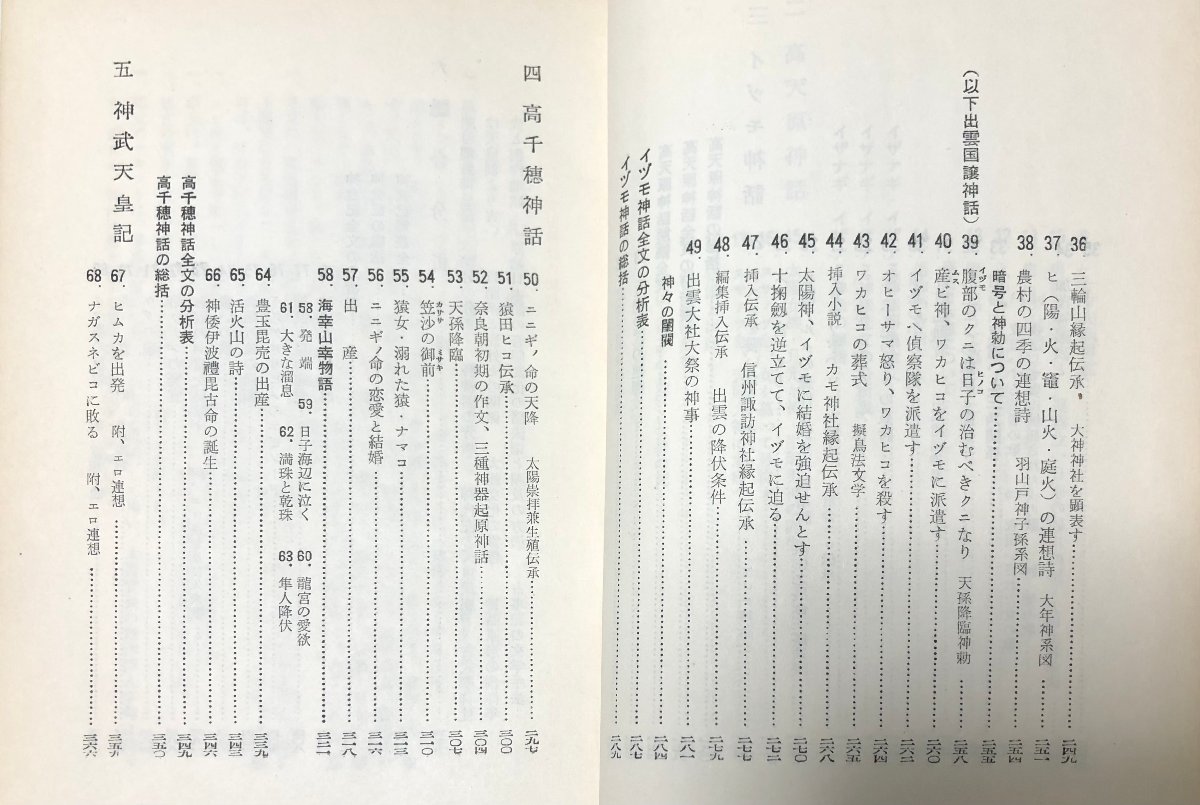 36. 三輪山縁起伝承, 大神神社を顕表す……二四九
37. ヒ（陽・火・竈・山火・庭火）の連想詩 大年神系図……二五一
38. 農村の四季の連想詩 羽山戸神子孫系図……二五四
（以下出雲国譲神話）
暗号と神勅について……二五五
39. 腹部のクニは日子の治むべきクニなり 天孫降臨神勅……二五八
イヅモ ヒノコ
40. 産ビ神、ワカヒコをイヅモに派遣す……二六〇
ムス
41. イヅモへ偵察隊を派遣す……二六二
42. オヒーサマ怒り、ワカヒコを殺す……二六四
43. ワカヒコの葬式 擬鳥法文学……二六五
44. 挿入小説 カモ神社縁起伝承……二六八
45. 太陽神、イヅモに結婚を強迫せんとす……二七〇
46. 十掬劔を逆立てて、イヅモに迫る……二七二
47. 挿入伝承 信州諏訪神社縁起伝承……二七七
48. 編集挿入伝承 出雲の降伏条件……二七九
49. 出雲大社大祭の神事……二八一
神々の閨閥……二八四
イヅモ神話全文の分析表……二八七
イヅモ神話の総括……二八九
四 高千穂神話
50. ニニギノ命の天降 太陽崇拝兼生殖伝承……二九七
51. 猿田ヒコ伝承……三〇〇
52. 奈良朝初期の作文、三種神器起原神話……三〇四
53. 天孫降臨……三〇七
54. 笠沙の御前……三一〇
カササ ミサキ
55. 猿女・溺れた猿・ナマコ……三一三
56. ニニギノ命の恋愛と結婚……三一六
57. 出 産……三一八
58. 海幸山幸物語……三二一
58. 発 端 59. 日子海辺に泣く 60. 龍宮の愛欲
61. 大きな溜息 62. 満珠と乾珠 63. 隼人降伏
64. 豊玉毘売の出産……三三九
65. 活火山の詩……三四三
66. 神倭伊波禮毘古命の誕生……三四六
高千穂神話全文の分析表……三四九
高千穂神話の総括……三五〇
五 神武天皇記
67. ヒムカを出発 附、エロ連想……三五九
68. ナガスネビコに敗る 附、エロ連想……三六六